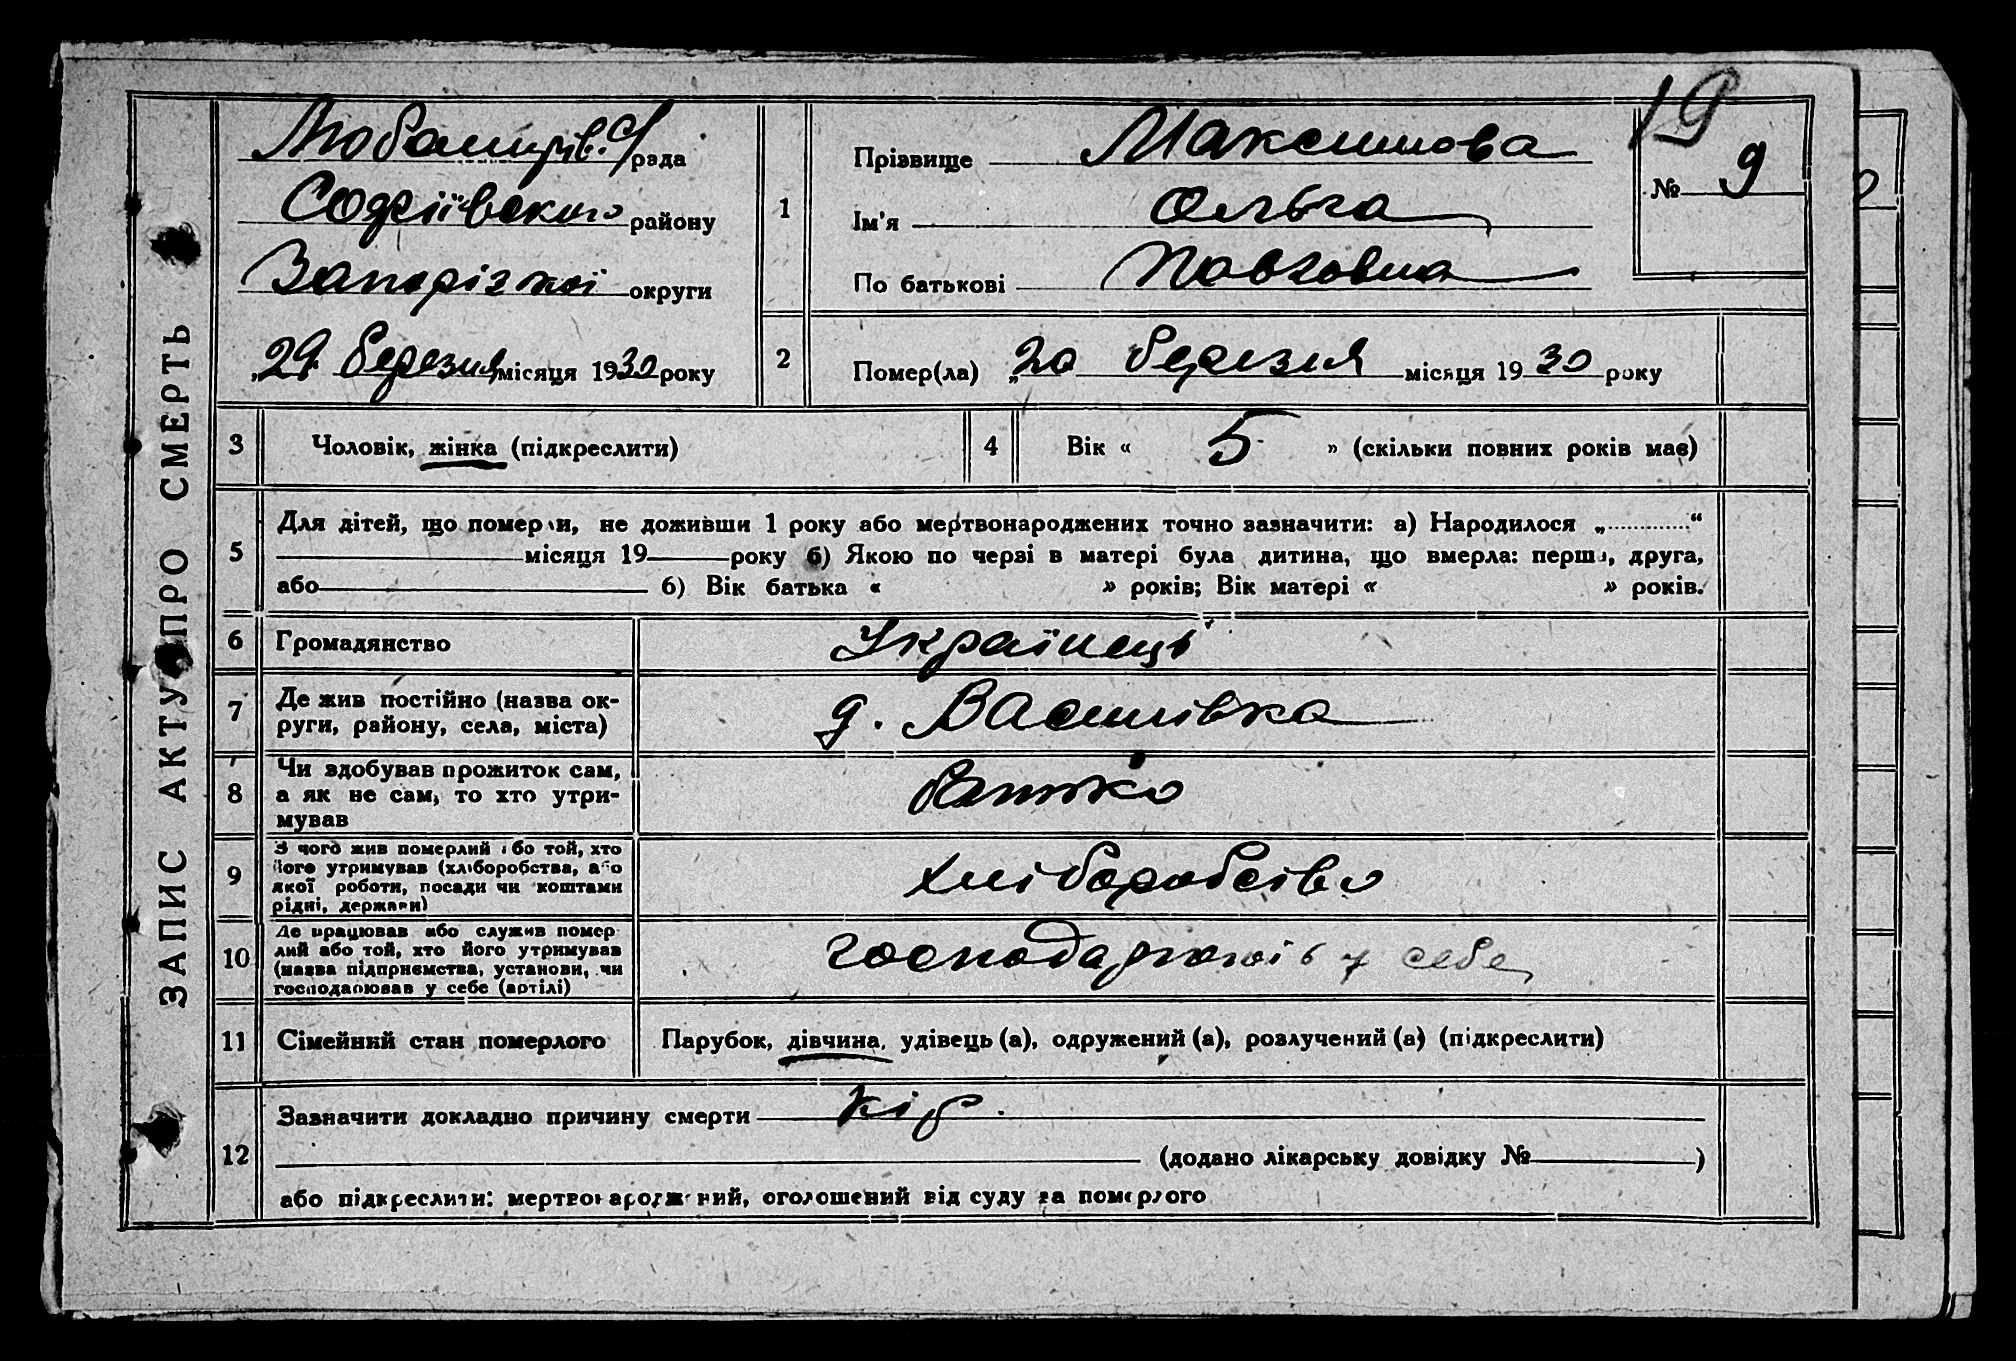 ЗАПИС АКТУ ПРО СМЕРТЬ
19
рада
Софіївського району
Запорізкої округи
„29 березня місяця 1930 року
1
Прізвище Максимова
Ім'я Ольга
По батькові Павловна
№ 9
2
Помер(ла) „20 березня місяця 1930 року
3
Чоловік, жінка (підкреслити)
4
Вік « 5 » (скільки повних років має)
5
Для дітей, що померли, не доживши 1 року або мертвонароджених точно зазначити: а) Народилося „ “
місяця 19 року б) Якою по черзі в матері була дитина, що вмерла: перша, друга,
або б) Вік батька « » років; Вік матері « » років.
6
Громадянство
Українець
7
Де жив постійно (назва ок-
руги, району, села, міста)
д. Василівка
8
Чи здобував прожиток сам,
а як не сам, то хто утри-
мував
батько
9
З чого жив померлий або той, хто
його утримував (хліборобства, або
якої роботи, посади чи коштами
рідні, держави)
хліборобсво
10
Де працював або служив помер
лий або той, хто його утримував
(назва підприємства, установи, чи
господарював у себе (артілі)
у себе
11
Сімейний стан померлого
Парубок, дівчина, удівець (а), одружений (а), розлучений (а) (підкреслити)
12
Зазначити докладно причину смерти кір.
(додано лікарську довідку № )
або підкреслити: мертвонароджений, оголошений від суду за померлого